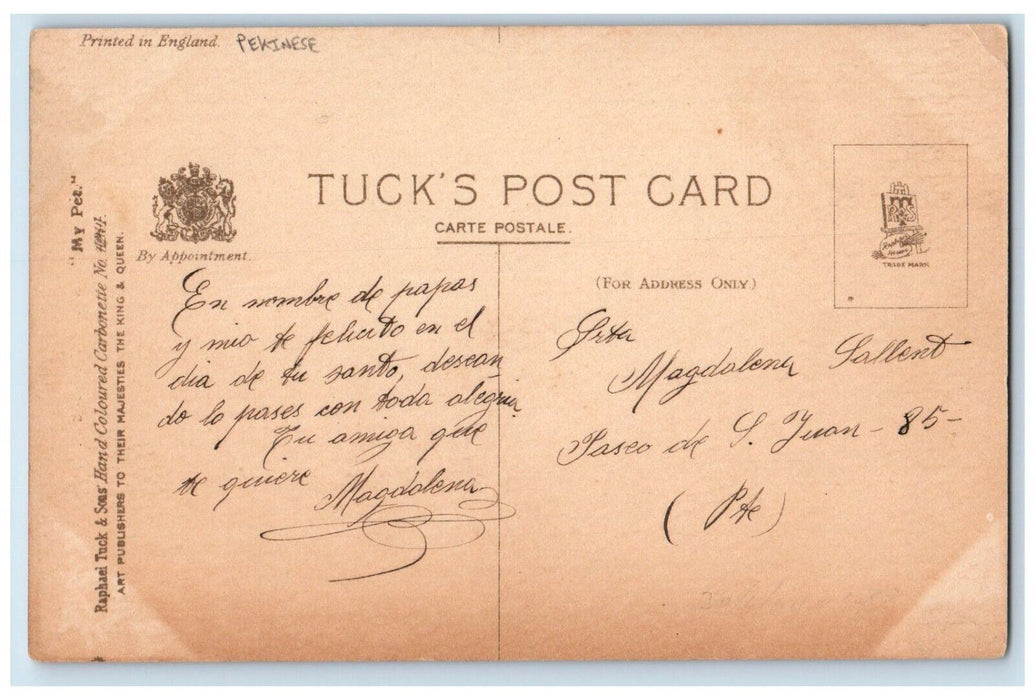 Printed in England. PEKINESE
TUCK'S POST CARD
CARTE POSTALE.
By Appointment.
(FOR ADDRESS ONLY)
TRADE MARK
"My Pet."
Raphael Tuck & Sons' Hand Coloured Carbonette No.
ART PUBLISHERS TO THEIR MAJESTIES THE KING & QUEEN.
En nombre de papas
y mio te felicito en el
dia de tu santo, desean
do lo pases con toda alegria
Tu amiga que
te quiere Magdalena
Srta
Magdalena Sallent
Paseo de S. Juan - 85-
(Pte)